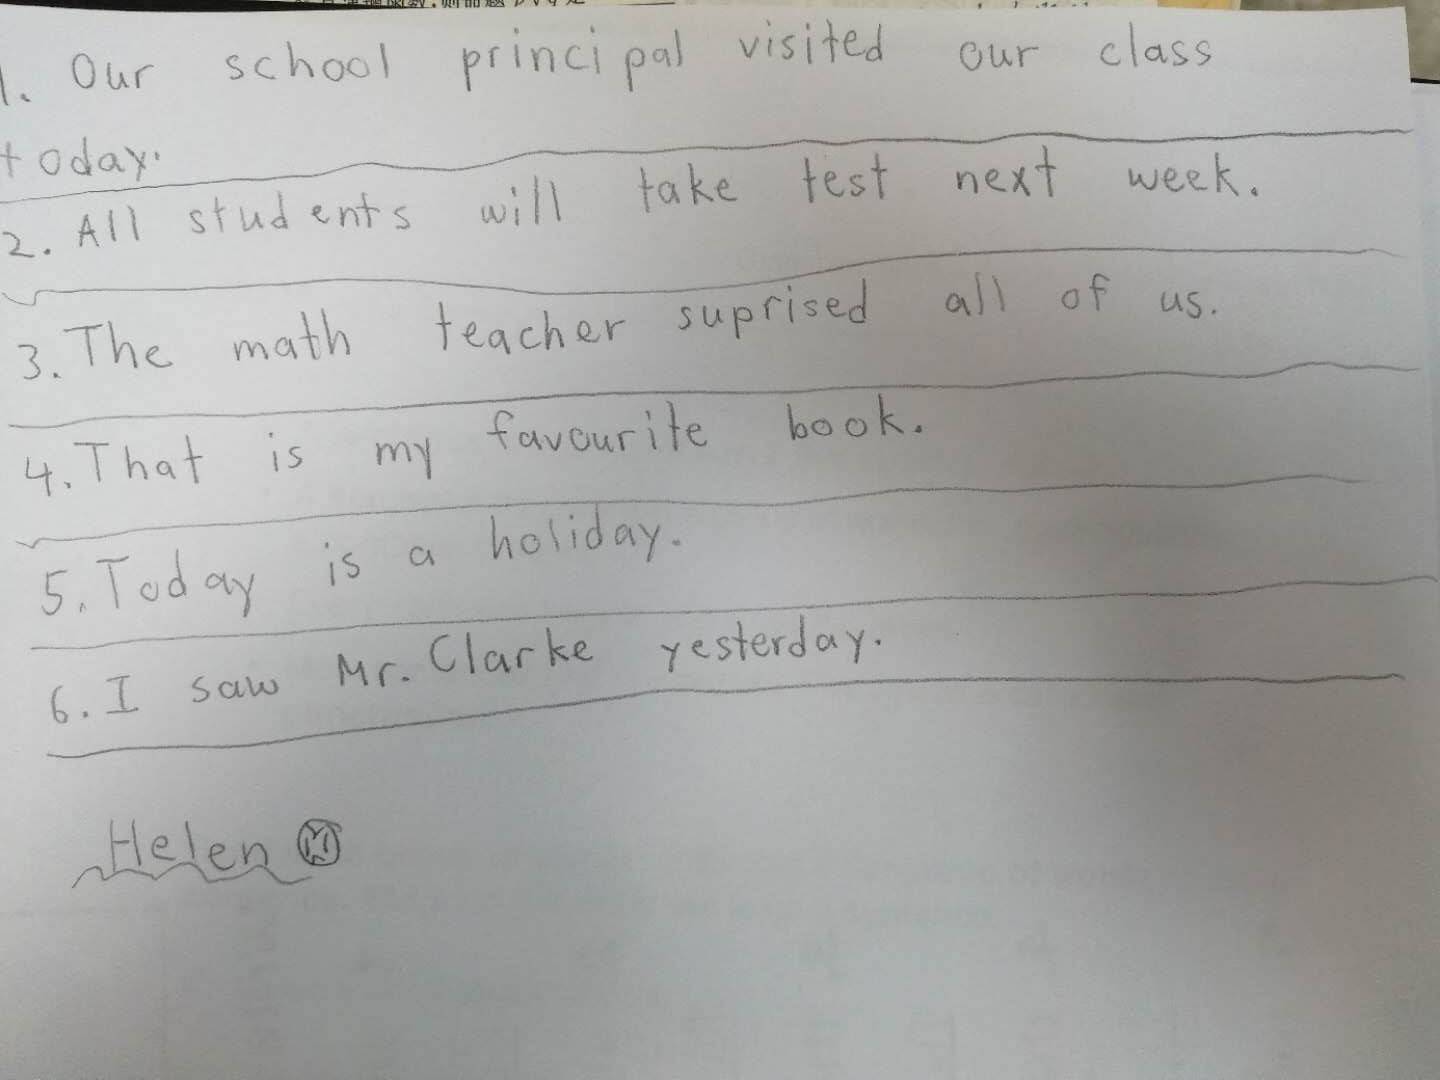 1. Our school principal visited our class
today.
2. All students will take test next week.
3. The math teacher suprised all of us.
4. That is my favourite book.
5. Today is a holiday.
6. I saw Mr. Clarke yesterday.
Helen